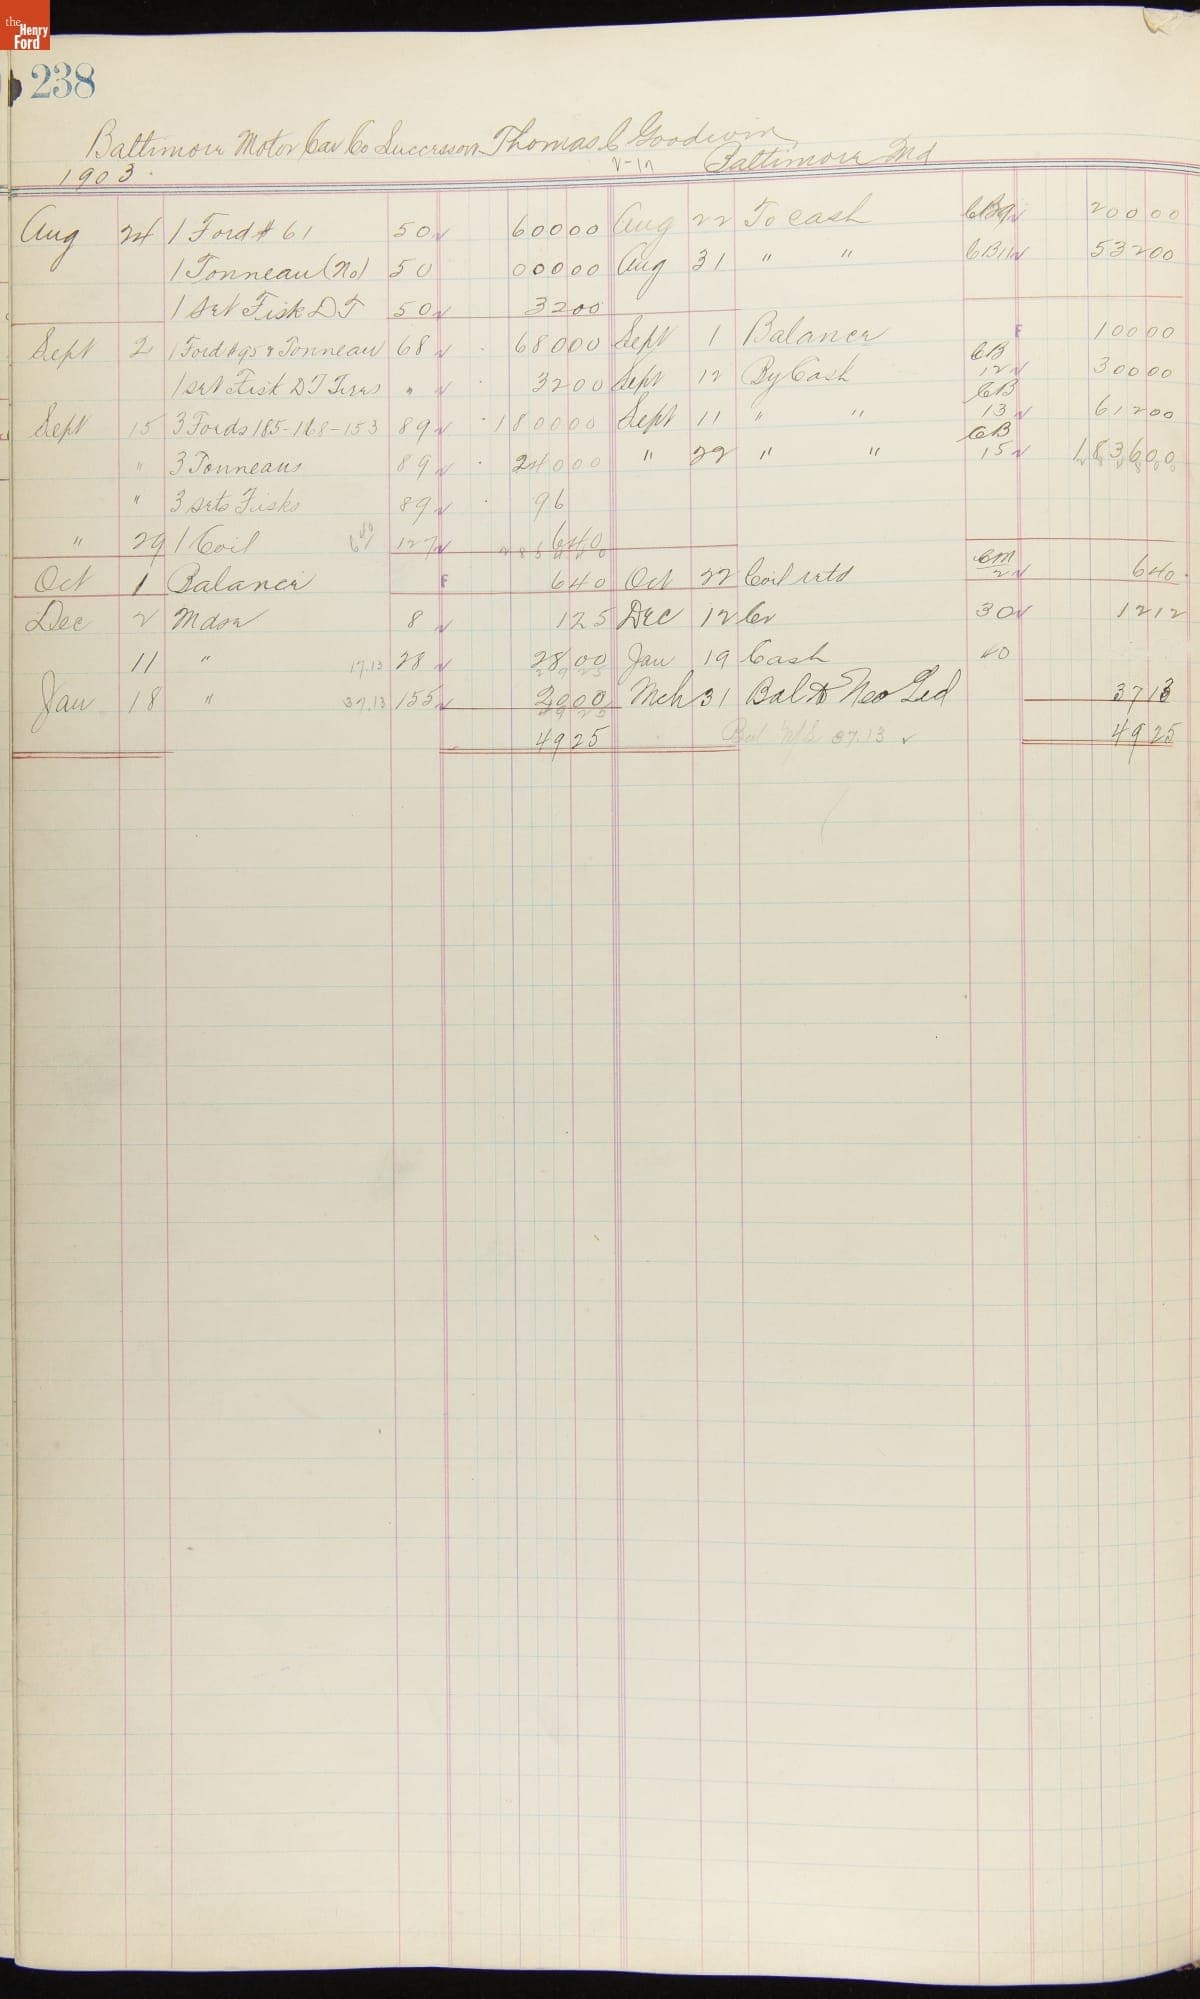 the Henry Ford
238
Baltimore Motor Car Co Successors Thomas C Goodwin
Baltimore Md
1903
Aug 24 1 Ford # 61 50 60000 Aug 22 To cash CB9 20000
1 Tonneau (No) 50 00000 Aug 31 " " CB11 53200
1 set Fisk DT 50 3200
Sept 2 1 Ford #95 & Tonneau 68 68000 Sept 1 Balance F 10000
1 set Fisk DT Tires " 3200 Sept 12 By Cash CB 12 30000
Sept 15 3 Fords 185-168-153 89 180000 Sept 11 " " CB 13 61200
" 3 Tonneaus 89 24000 " 22 " " CB 15 183600
" 3 sets Fisks 89 96
" 29 1 Coil 127 640
Oct 1 Balance F 640 Oct 22 Coil retd CM 2 640
Dec 2 Mdse 8 125 Dec 12 Cr 30 1212
11 " 17.13 28 2800 Jan 19 Cash 40
Jan 18 " 37.13 155 2000 Mch 31 Bal to New Led 3713
4925 Bal N/L 37.13 4925